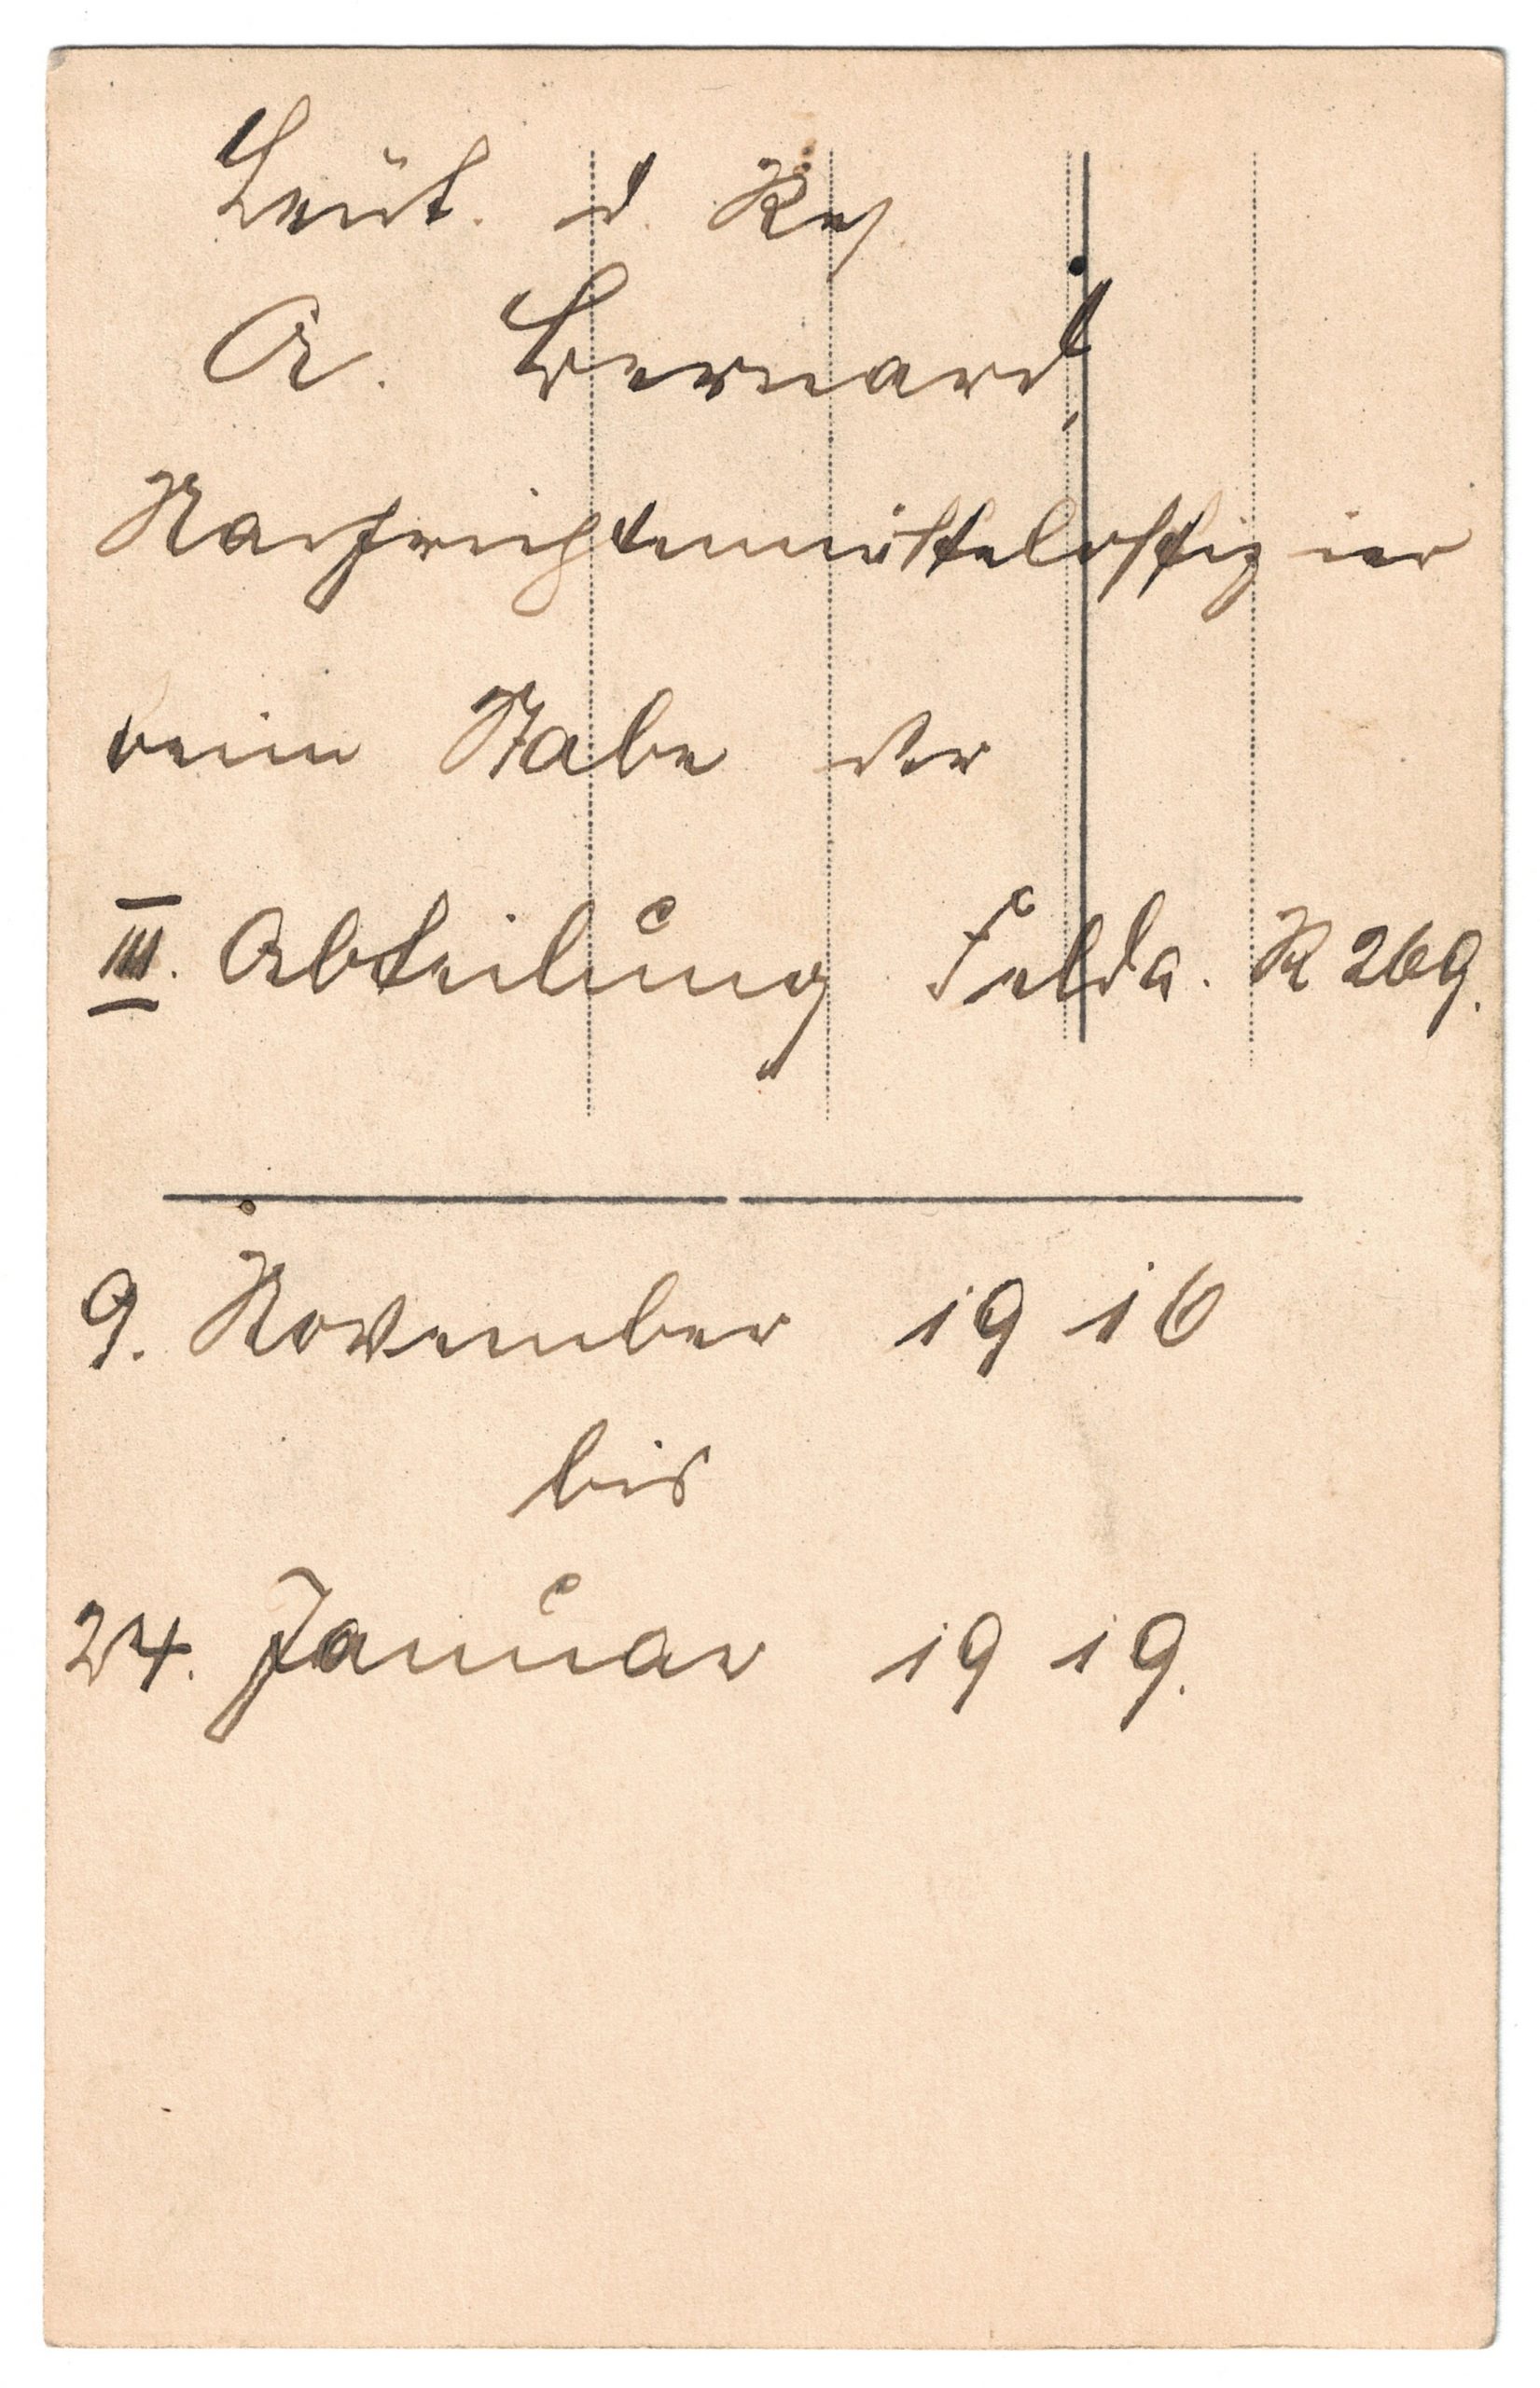 Leut. d. Res.
A. Bernard,
Nachrichtenmitteloffizier
beim Stabe der
III. Abteilung Felda. R 269.
9. November 1916
bis
24. Januar 1919.